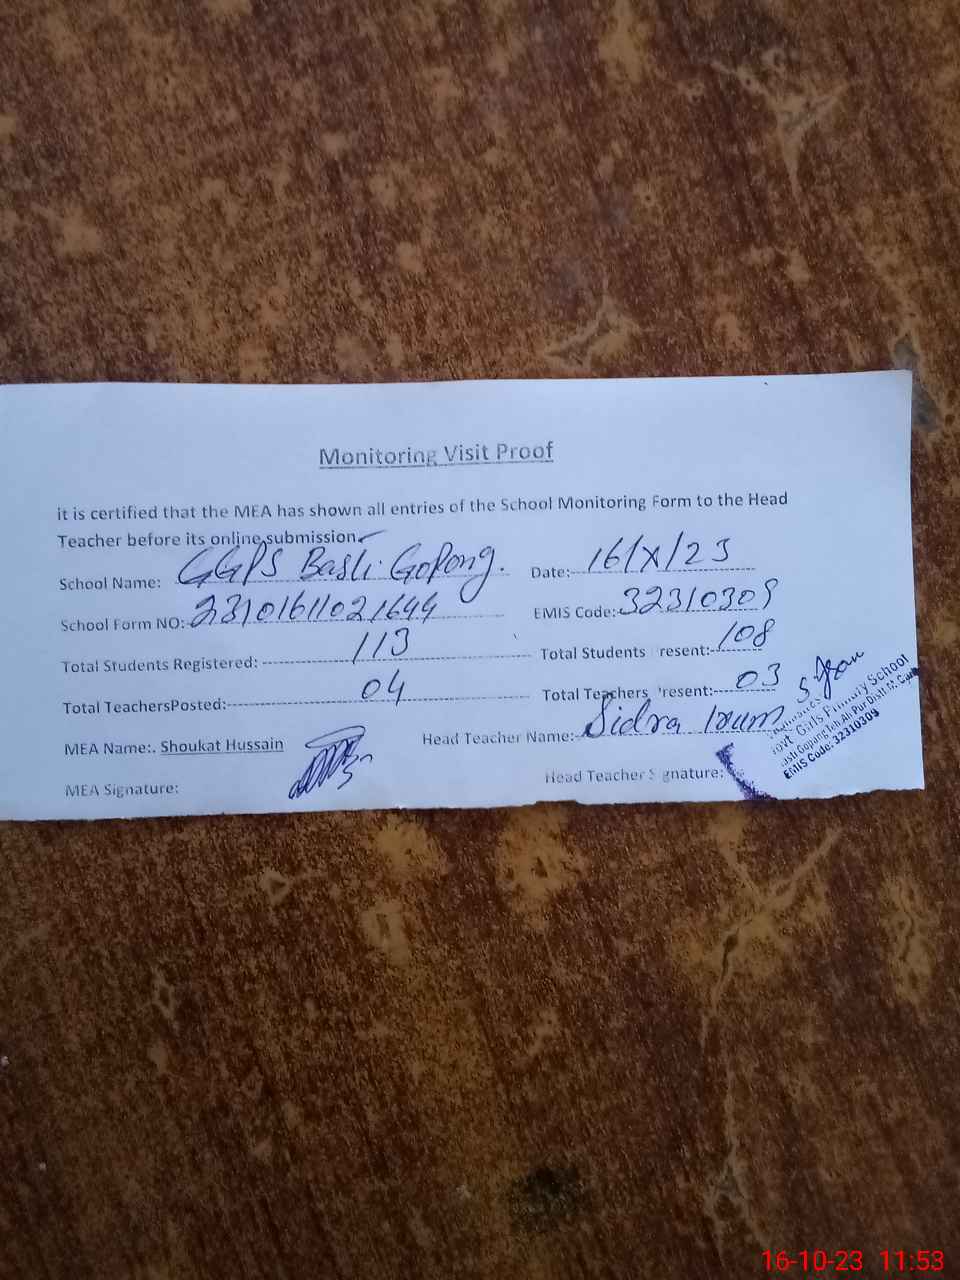 Monitoring Visit Proof
it is certified that the MEA has shown all entries of the School Monitoring Form to the Head
Teacher before its online submission
School Name: GGPS Basti Gopong. Date: 16/X/23
School Form NO: 23101611021644 EMIS Code: 32310309
Total Students Registered: 113 Total Students resent: 108
Total TeachersPosted: 04 Total Teachers resent: 03
MEA Name:. Shoukat Hussain Head Teacher Name: Sidra Irum
MEA Signature: Head Teacher S gnature:
ovt. Girls Primary School
asti Gopang Teh Ali Pur Distt M.
EMIS Code: 32310309
16-10-23 11:53